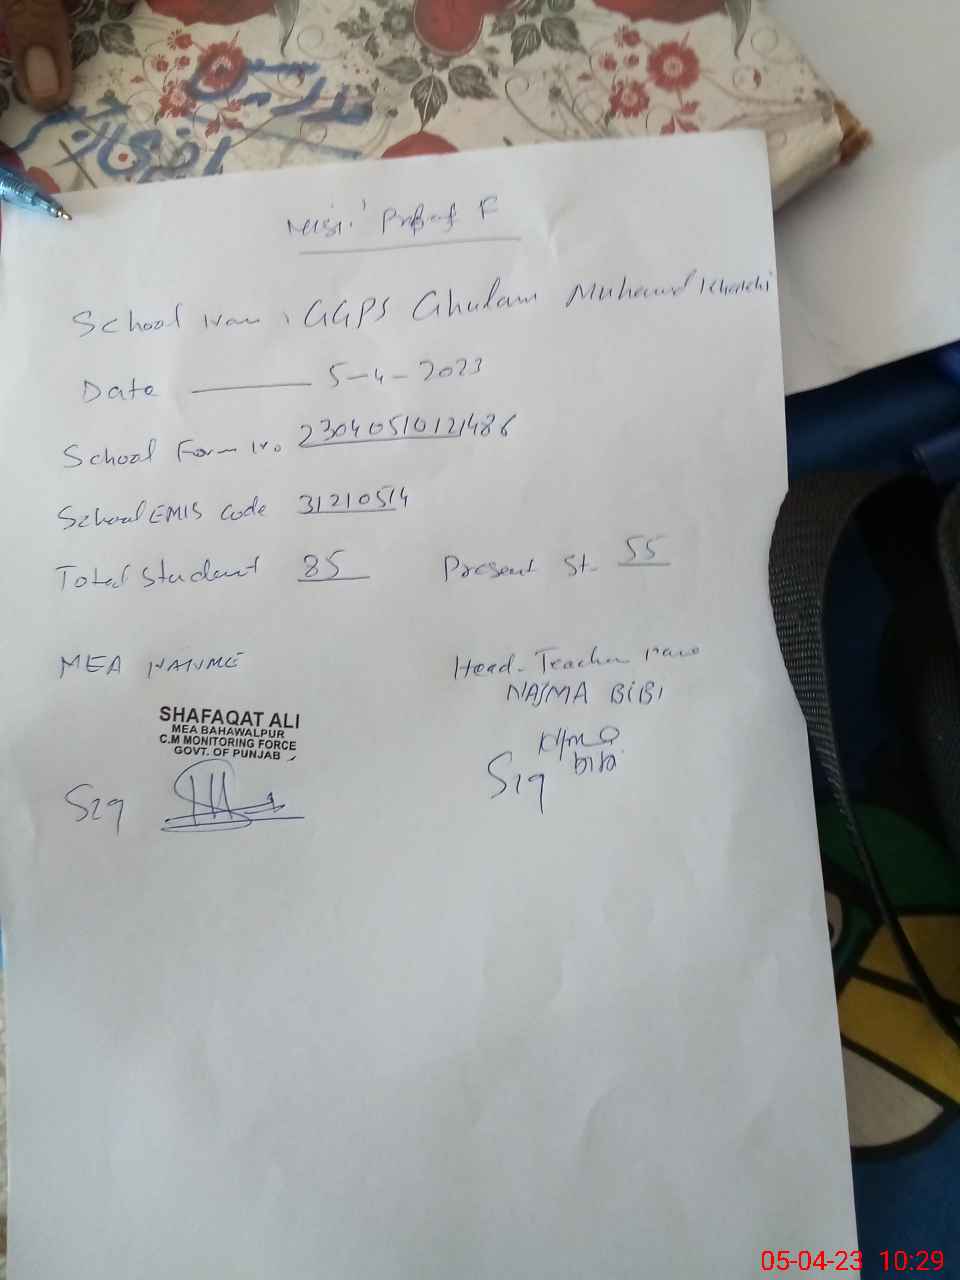 School Nam : GGPS Ghulam Muhammad
Date 5-4-2023
School Form No. 23040510121486
School EMIS code 31210514
Total Student 85 Present St. 55
MEA NAME
Head-Teacher Name
NAJMA BiBi
SHAFAQAT ALI
MEA BAHAWALPUR
C.M MONITORING FORCE
GOVT. OF PUNJAB
Sig
Sig
05-04-23 10:29